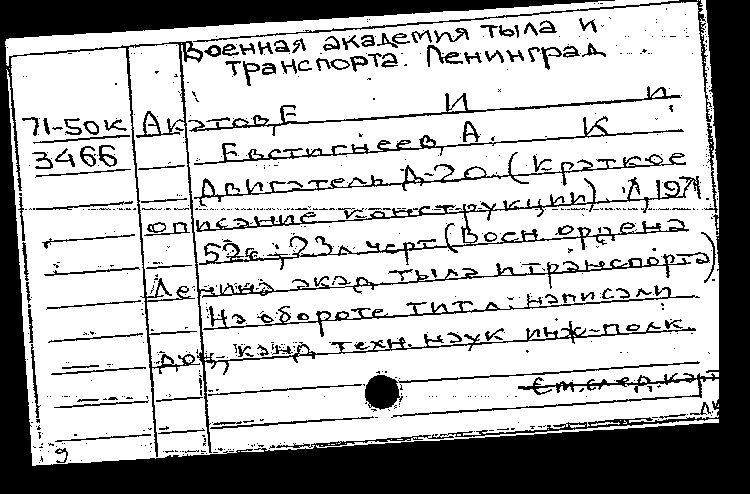 Военная академия тыла и
транспорта. Ленинград
71-50к Акатов, Е И и
3466 Евстигнеев, А. К
Двигатель Д-20. (Краткое
описание конструкции). Л, 1971.
52с; 23л. черт (Воен. ордена
Ленина акад. тыла и транспорта)
На обороте тит. л: написали
доц., канд. техн. наук инж-полк.
См. след. карт
9